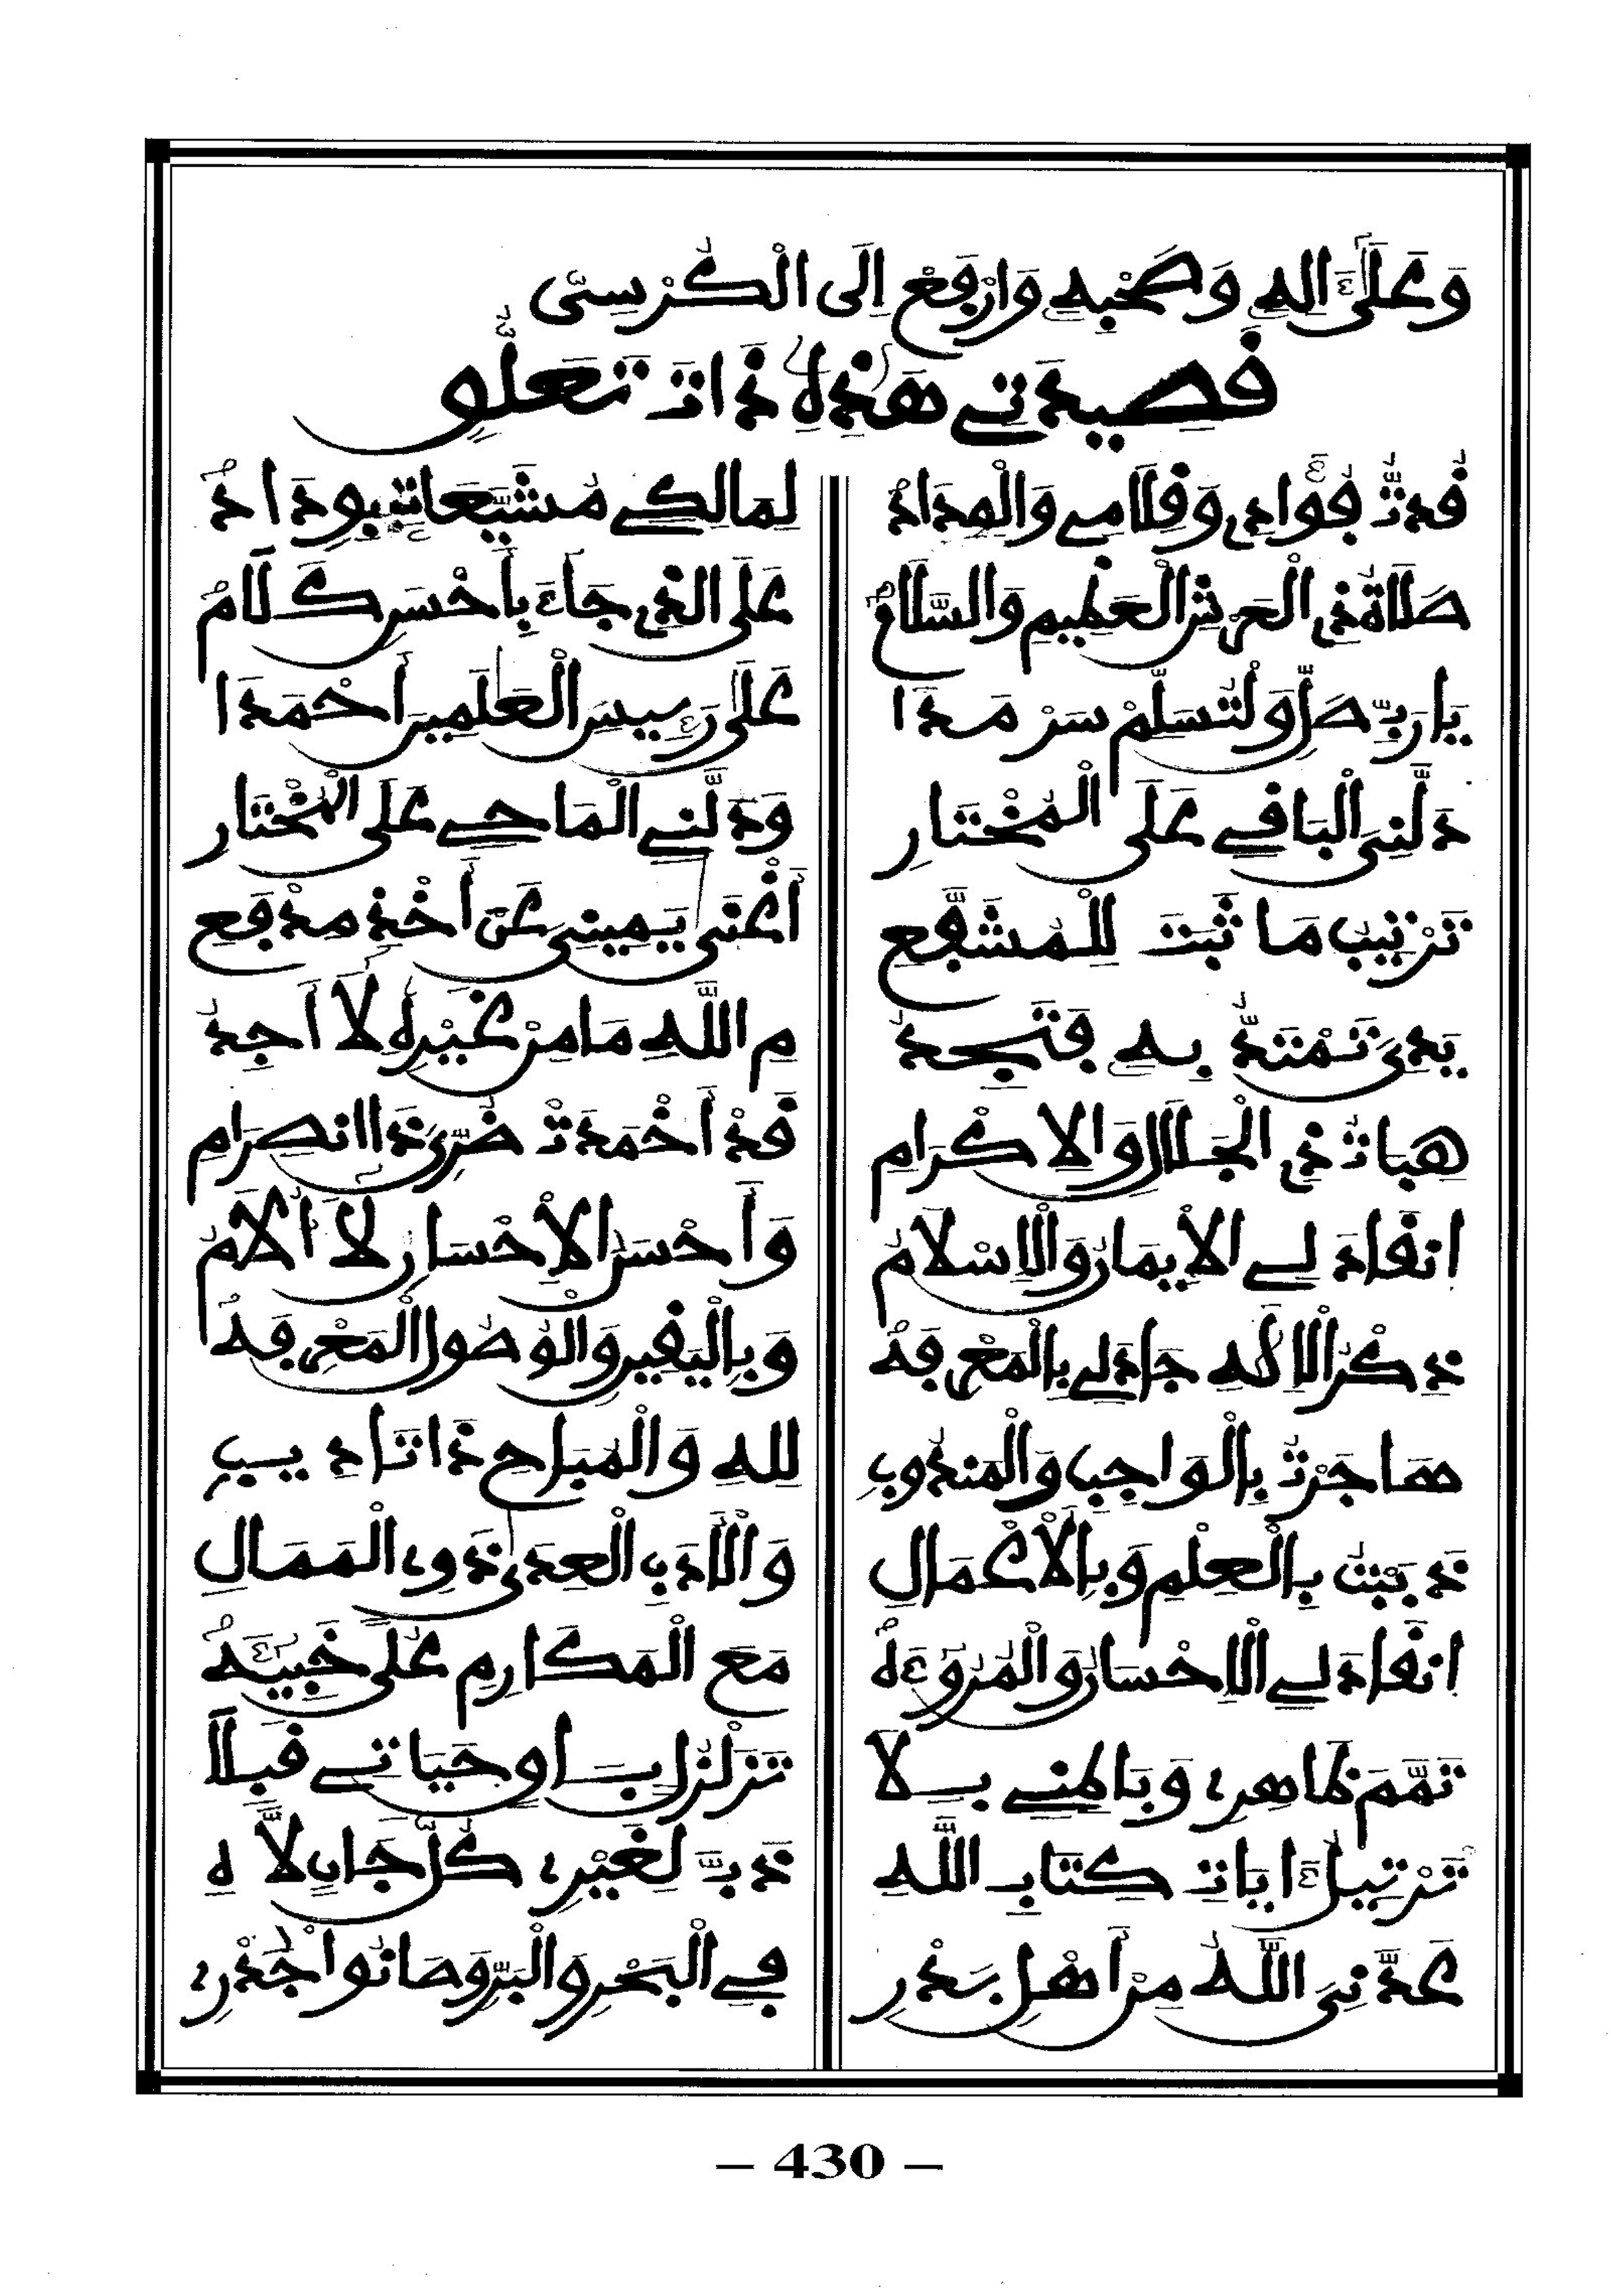 وَعَلَىٰ ءَالِهِ وَصَحْبِهِ وَارْفَعْ إِلَى الْكُرْسِيّ
قَصِيدَتِي هَذِهِ ذَاتَ تَعَلُّقٍ
قُدْتُ فُؤَادِي وَقَلَامِي وَالْمِدَادُ لِمَالِكِي مُشَيَّعَاتٍ بِوِدَادُ
صَلَاةُ ذِي الْعَرْشِ الْعَظِيمِ وَالسَّلَامُ عَلَى الَّذِي جَاءَ بِأَحْسَنِ كَلَامُ
يَا رَبِّ صَلِّ وَلْتُسَلِّمْ سَرْمَدَا عَلَى رَئِيسِ الْعَالَمِينَ أَحْمَدَا
دَلَّنِيَ الْبَاقِي عَلَى الْمُخْتَارِ وَدَلَّنِي الْمَاحِي عَلَى الْمُخْتَارِ
تَرْتِيبُ مَا ثَبَتَ لِلْمُشَفَّعِ أَغْنَى يَمِينِي عَنْ أَخْذِ مِدْفَعِ
يَدِي تَمْتَدُّ بِهِ فَتَجِدُ مِ اللَّهِ مَا مِنْ غَيْرِهِ لَا أَجِدُ
هِبَاتُ ذِي الْجَلَالِ وَالْإِكْرَامِ قَدْ أَخْمَدَتْ ضُرِّيَ ذَا انْصِرَامِ
انْقَادَ لِي الْإِيمَانُ وَالْإِسْلَامُ وَأَحْسَنُ الْإِحْسَانِ لَا أُلَامُ
ذِكْرُ الْإِلَٰهِ جَادَ لِي بِالْمَعْرِفَهْ وَبِالْيَقِينِ وَالْوُصُولِ الْمَعْرِفَهْ
هَاجَرْتُ بِالْوَاجِبِ وَالْمَنْدُوبِ لِلهِ وَالْمُبَاحِ ذَا تَأْدِيبِ
ذَبَبْتُ بِالْعِلْمِ وَبِالْأَعْمَالِ وَالْأَدَبِ الْعِدَى ذَوِي الْمَمَالِ
انْقَادَ لِي الْإِحْسَانُ وَالْمُرُوءَهْ مَعَ الْمَكَارِمِ عَلَى خَبِيئَهْ
تَمَّمَ ظَاهِرِي وَبَاطِنِي بِلَا تَزَلْزُلٍ بَاقٍ حَيَاتِي قَبِلَا
تَرْتِيلُ ءَايَاتِ كِتَابِ اللَّهِ ذَبَّ لِغَيْرِي كُلَّ جَانٍ لَّاهِ
عَدَّنِيَ اللَّهُ مِنْ أَهْلِ بَدْرِ فِي الْبَحْرِ وَالْبَرِّ وَصَانُوا جُدْرِي
– 430 –